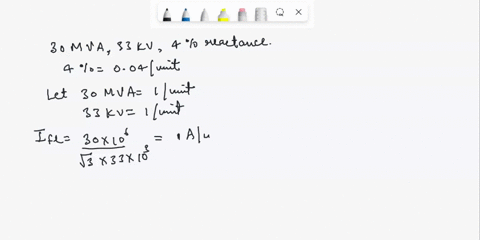 30 MVA, 33 KV, 4 % reactance.
4 % = 0.04/unit
Let 30 MVA = 1/unit
33 KV = 1/unit
Ifl = 30×10⁶ / √3 ×33×10³ = 1 A/u